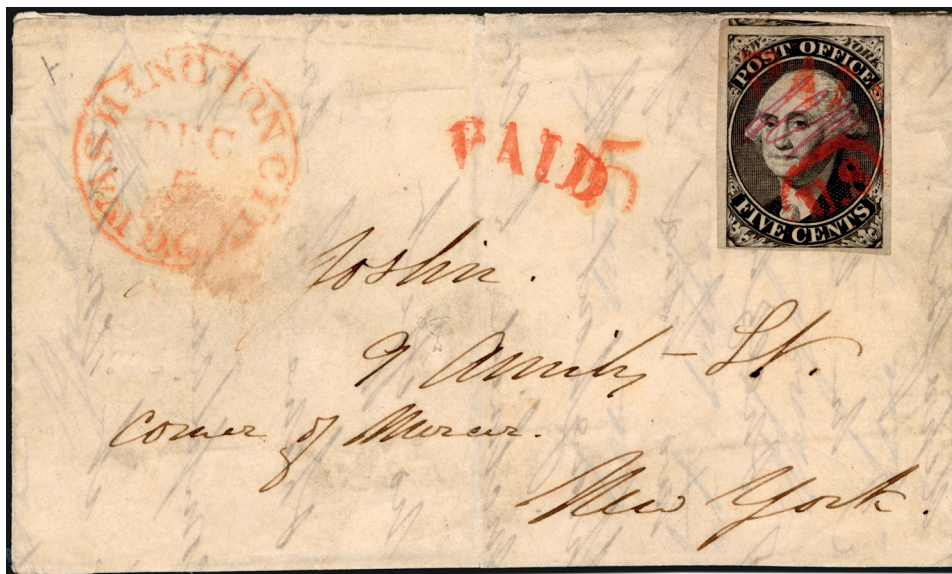 WASHINGTON CITY D.C.
DEC
5
PAID
5
NEW YORK
POST OFFICE
FIVE CENTS
Joslin.
9 Amity St.
corner of Mercer.
New York.